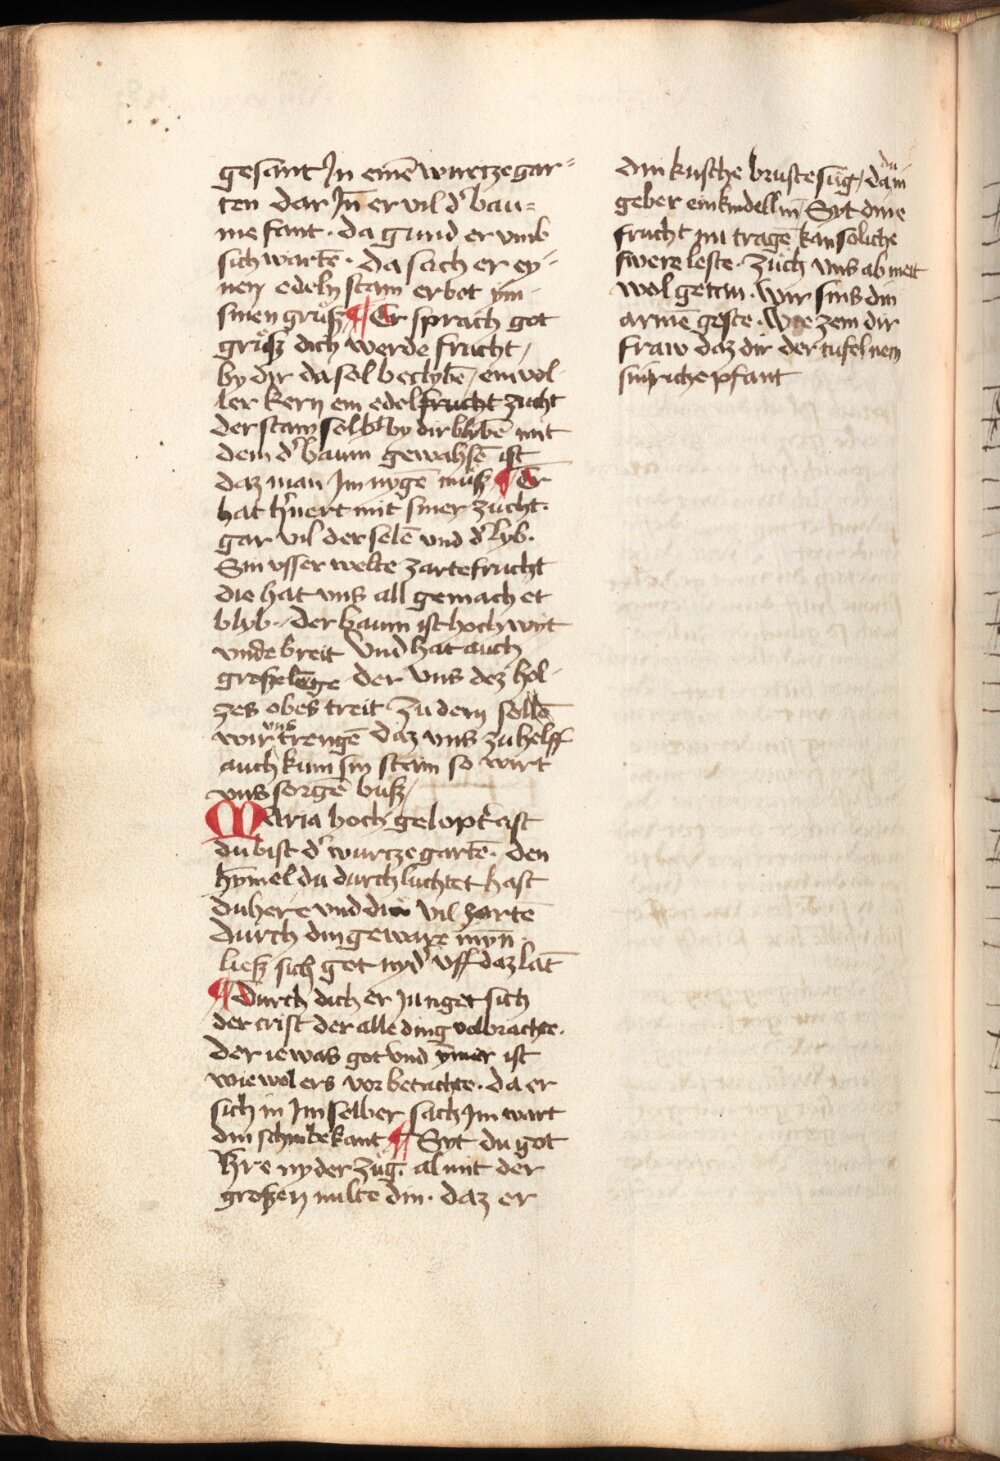 gesant Jn emē wurtzegar⸗
ten dar Jn̄ er vil d' bau⸗
me fant · da gund er vmb
sich wartē · da sach er ey⸗
nen edeln stam erbot ym
sinen gruͦß ¶ Er sprach got
gruͦß dich werde frucht /
by dir da sol beclybē / ein vol
ler kern ein edel frucht zucht
der stam selbst by dir blybē mit
dem d' baum gewahsē ist
daz man Jm nygē muͦß ¶ Er
hat h'uert mit siner zucht ·
gar vil der selē vnd d' lyb ·
Sin vsser welte zarte frucht
die hat vns all gemachet
blyb · der baum ist hoch wyt
vnde breit Vnd hat auch
große lenge der vns dez hol⸗
zes obes treit zu dem sollē
wir vns trengē daz vns zu helff
auch kum sin stam so wirt
vns sorgē buß /
Maria hoch gelopt' ast
du bist d' wurtzegartē · den
hȳmel du durchluchtet hast
du here vnd die vil zartē
durch din geware mȳn
ließ sich got nyd' vff daz lāt
¶ Durch dich er junget sich
der crist der alle ding volbrachte ·
der ie was got vnd ymer ist
wie wol ers vor betachte · da er
sich in Jm selber sach Jm wart
din schin bekant ¶ Syt du got
h're nyder zug · al mit der
großen milte din · daz er
din kusche bruste sug / da du in
geber ein kindellin / Syt dine
frucht jm tragē kan soliche
swere leste · Zuch vns ab meit
wol getan · Wir sins din
armē geste · Wie zem dir
fraw daz dir der tufel nem
sin riche pfant